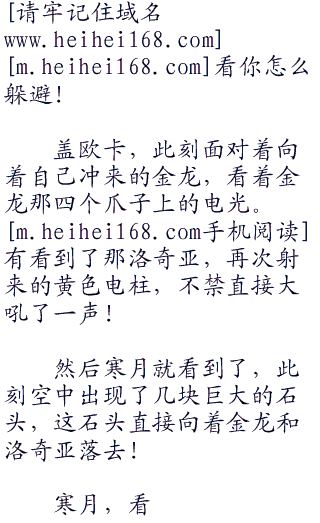 [请牢记住域名
www.heihei168.com]
[m.heihei168.com]看你怎么
躲避！
盖欧卡，此刻面对着向
着自己冲来的金龙，看着金
龙那四个爪子上的电光。
[m.heihei168.com手机阅读]
有看到了那洛奇亚，再次射
来的黄色电柱，不禁直接大
吼了一声！
然后寒月就看到了，此
刻空中出现了几块巨大的石
头，这石头直接向着金龙和
洛奇亚落去！
寒月，看